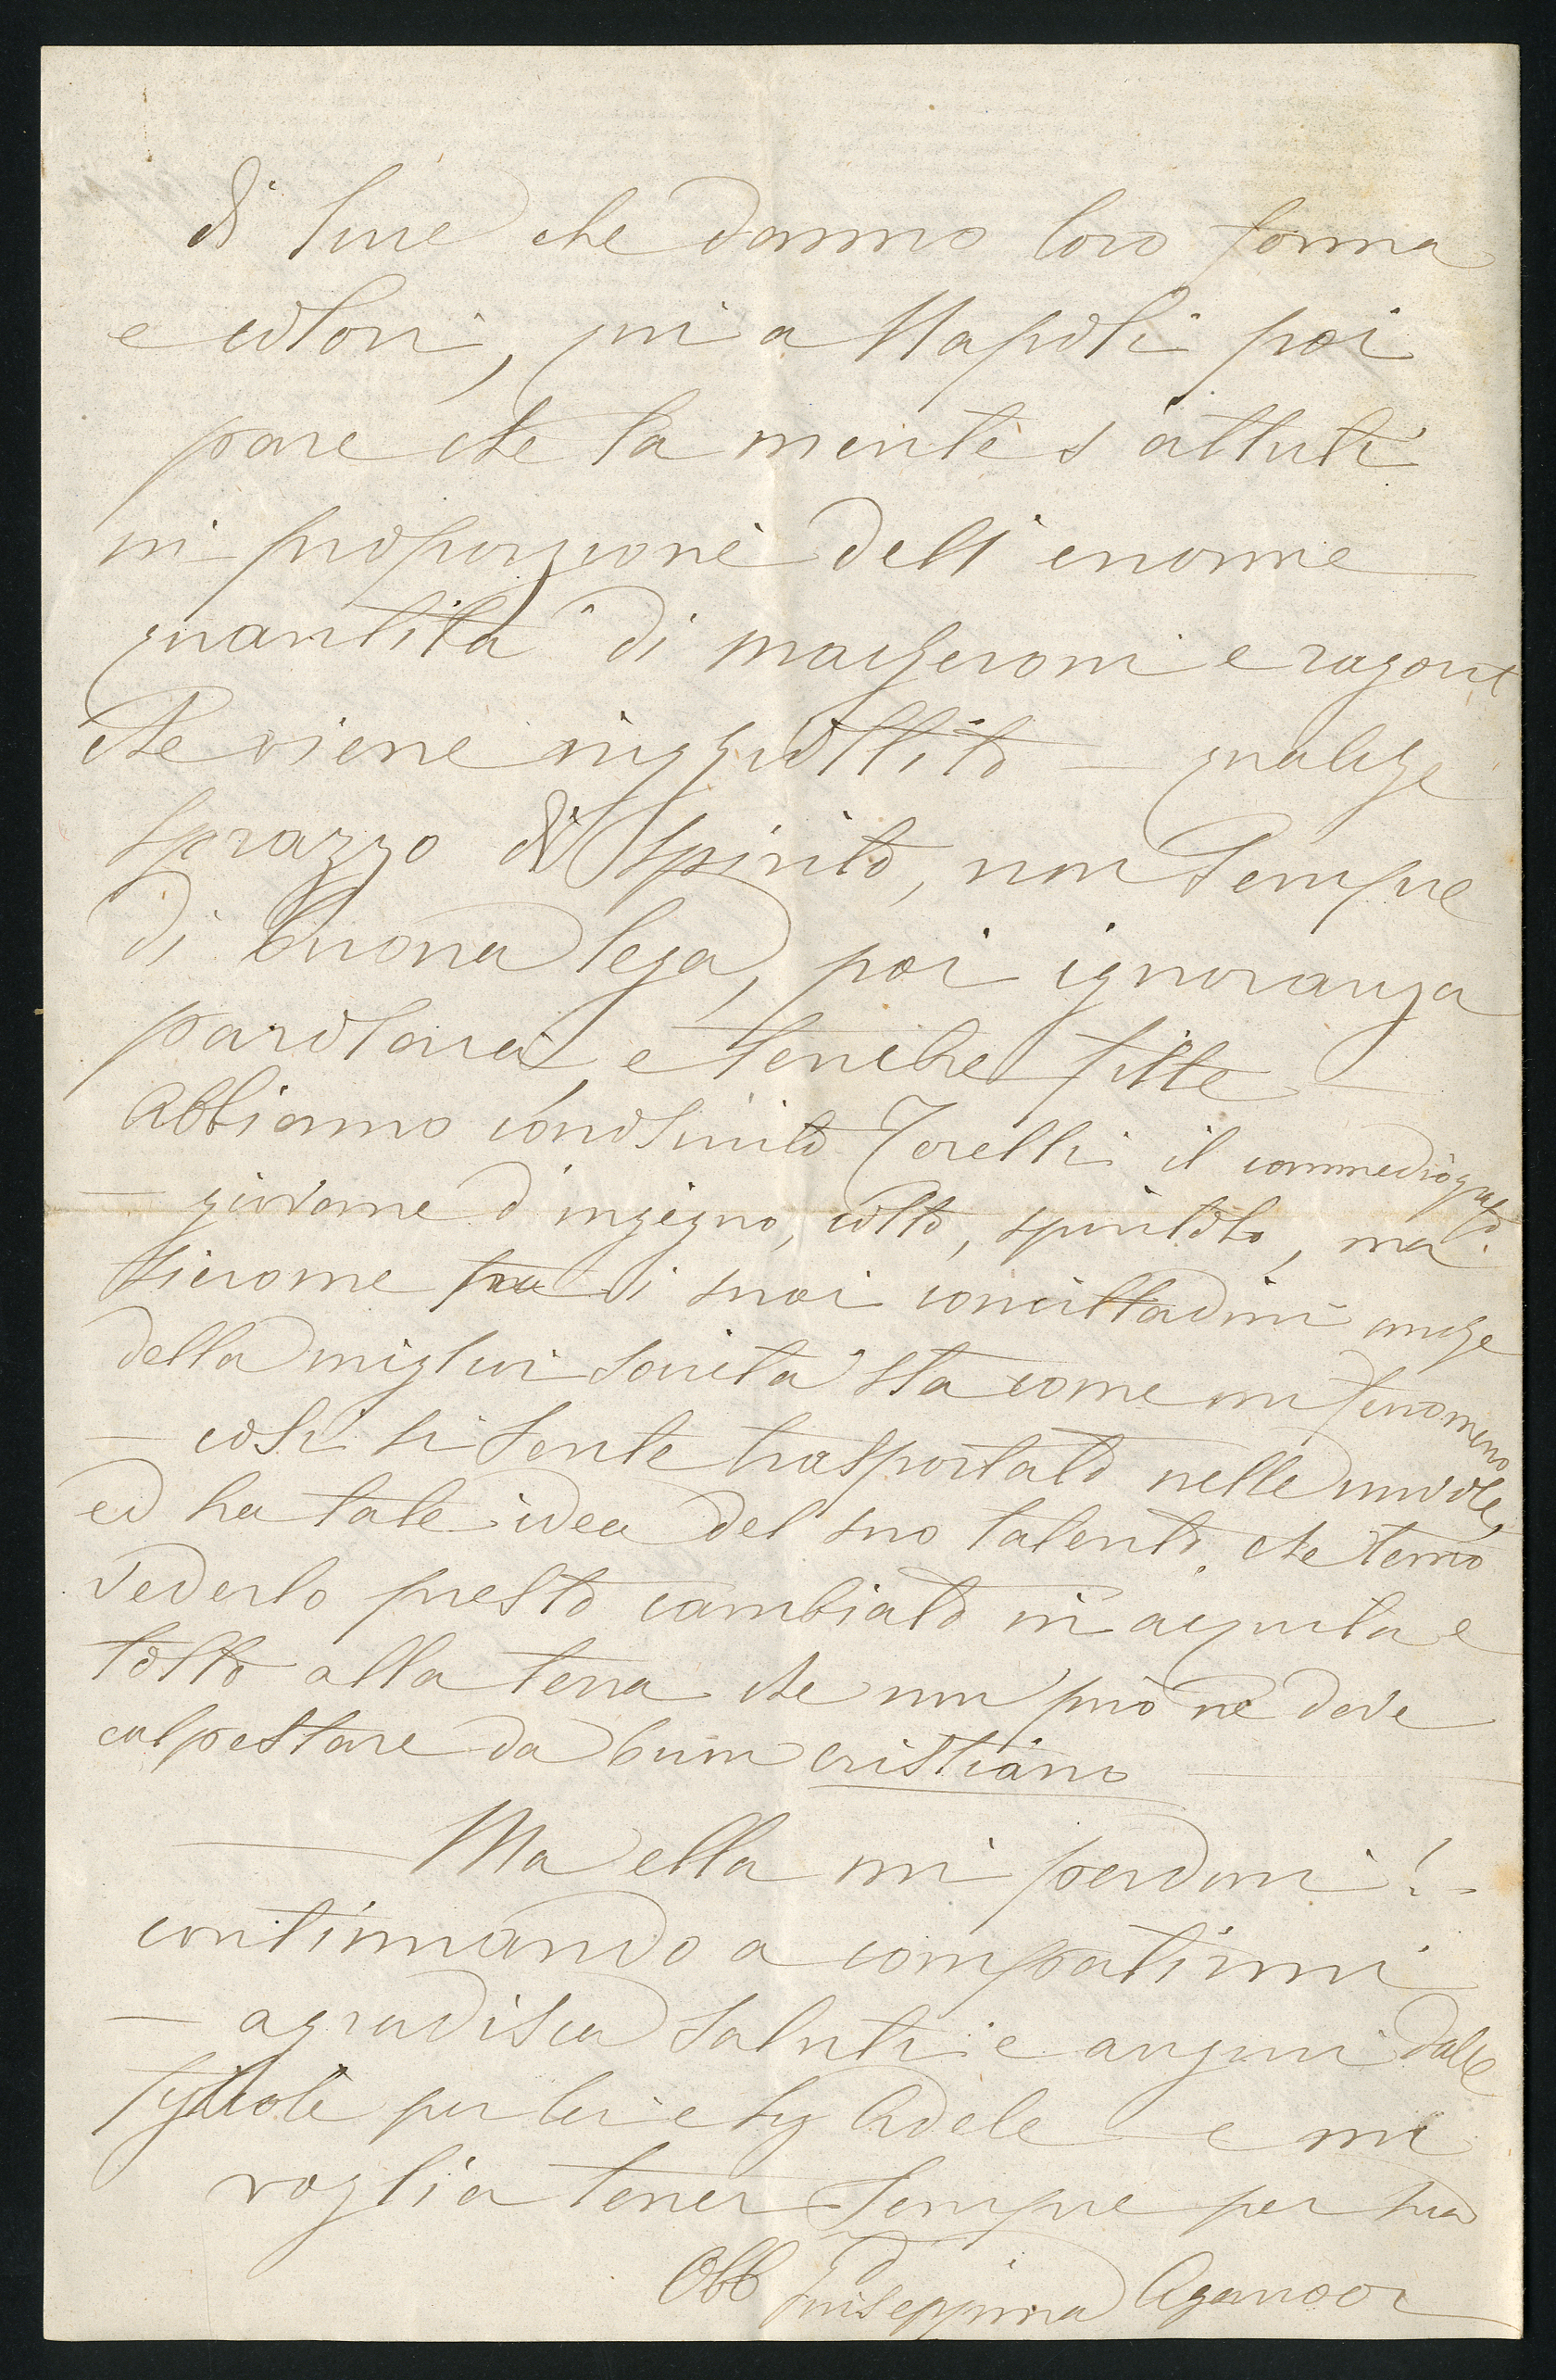 di luce che danno loro forma
e colori, qui a Napoli poi
pare che la mente s'attuti
in proporzione dell'enorme
quantità di maccheroni e ragout
che viene inghiottito — qualche
sprazzo di spirito, non sempre
di buona lega, poi ignoranza
parolaia e tenebre fitte —
Abbiamo conosciuto Torelli il commediografo
— giovane d'ingegno, colto, spiritoso, ma
siccome fra i suoi concittadini anche
della miglior società sta come un fenomeno
— così si sente trasportato nelle nuvole,
ed ha tale idea del suo talento che temo
vederlo presto cambiato in aquila e
tolto alla terra che non può nè deve
calpestare da buon cristiano —
— Ma ella mi perdoni! -
continuando a compatirmi
— aggradisca saluti e auguri dalle
figliole per lei e Sig Adele — e mi
voglia tener sempre per sua
Obb Giuseppina Aganoor